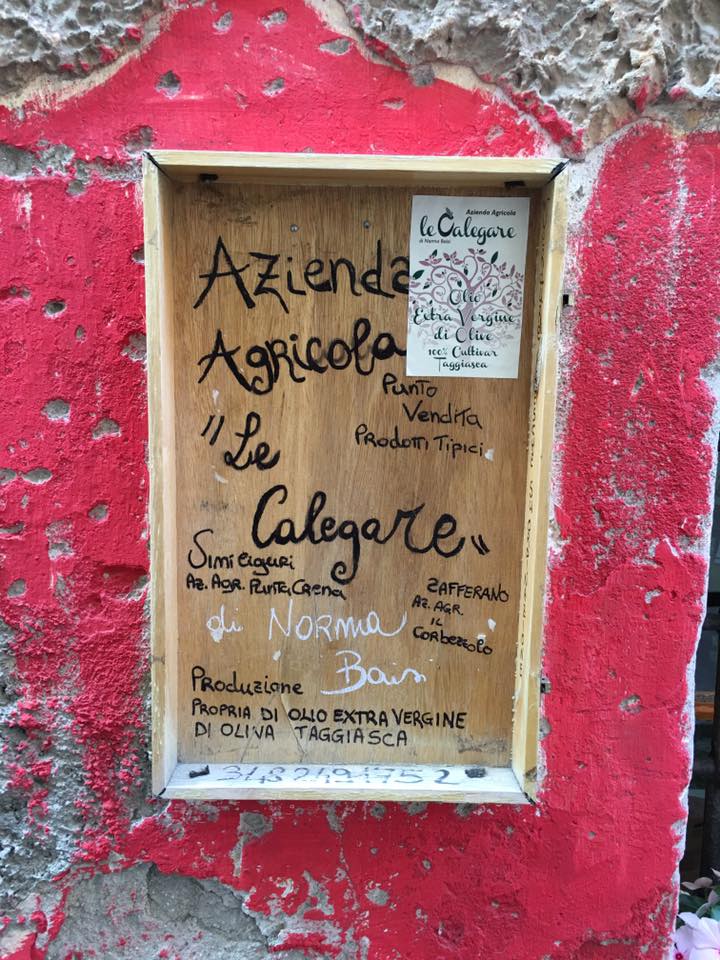 Azienda
Agricola
Punto
Vendita
Prodotti Tipici
"Le
Calegare"
Azienda Agricola
le Calegare
di Norma Baisi
Olio
Extra Vergine
di Olive
100% Cultivar
Taggiasca
Simi Liguri
Az. Agr. Punta Crena
ZAFFERANO
Az. AGR.
IL
Corbezzolo
di Norma
Produzione
PROPRIA DI OLIO EXTRA VERGINE
DI OLIVA TAGGIASCA
3482494752